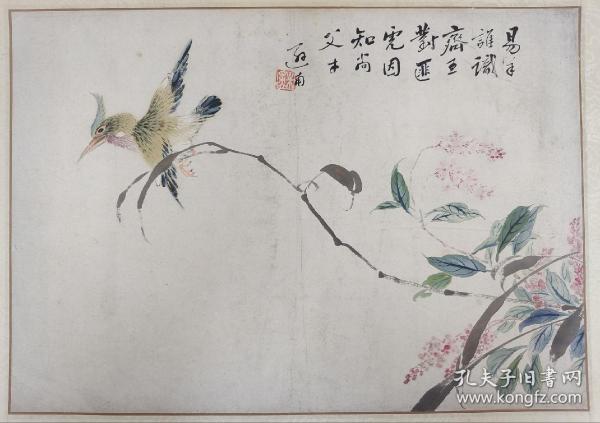 易羊
誰識
齊王
對匪
虎因
知尚
父本
孔夫子旧书网
www.kongfz.com